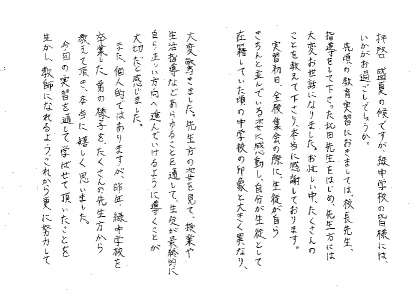 拝啓 盛夏の候ですが、緑中学校の皆様には、
いかがお過ごしでしょうか。
先頃の教育実習におきましては、校長先生、
指導をして下さった北田先生をはじめ、先生方には
大変お世話になりました。お忙しい中、たくさんの
ことを教えて下さり、本当に感謝しております。
実習初日、全校集会の際に、生徒が自ら
きちんと並んでいる姿に感動し、自分が生徒として
在籍していた頃の中学校の印象と大きく異なり、
大変驚きました。先生方の姿を見て、授業や
生活指導などあらゆることを通して、生徒が最終的に
自ら正しい方向へ進んでいけるように導くことが
大切だと感じました。
また、個人的ではありますが、昨年 緑中学校を
卒業した弟の様子を、たくさんの先生方から
教えて頂き、本当に嬉しく思いました。
今回の実習を通して学ばせて頂いたことを
生かし、教師になれるよう、これから更に努力して